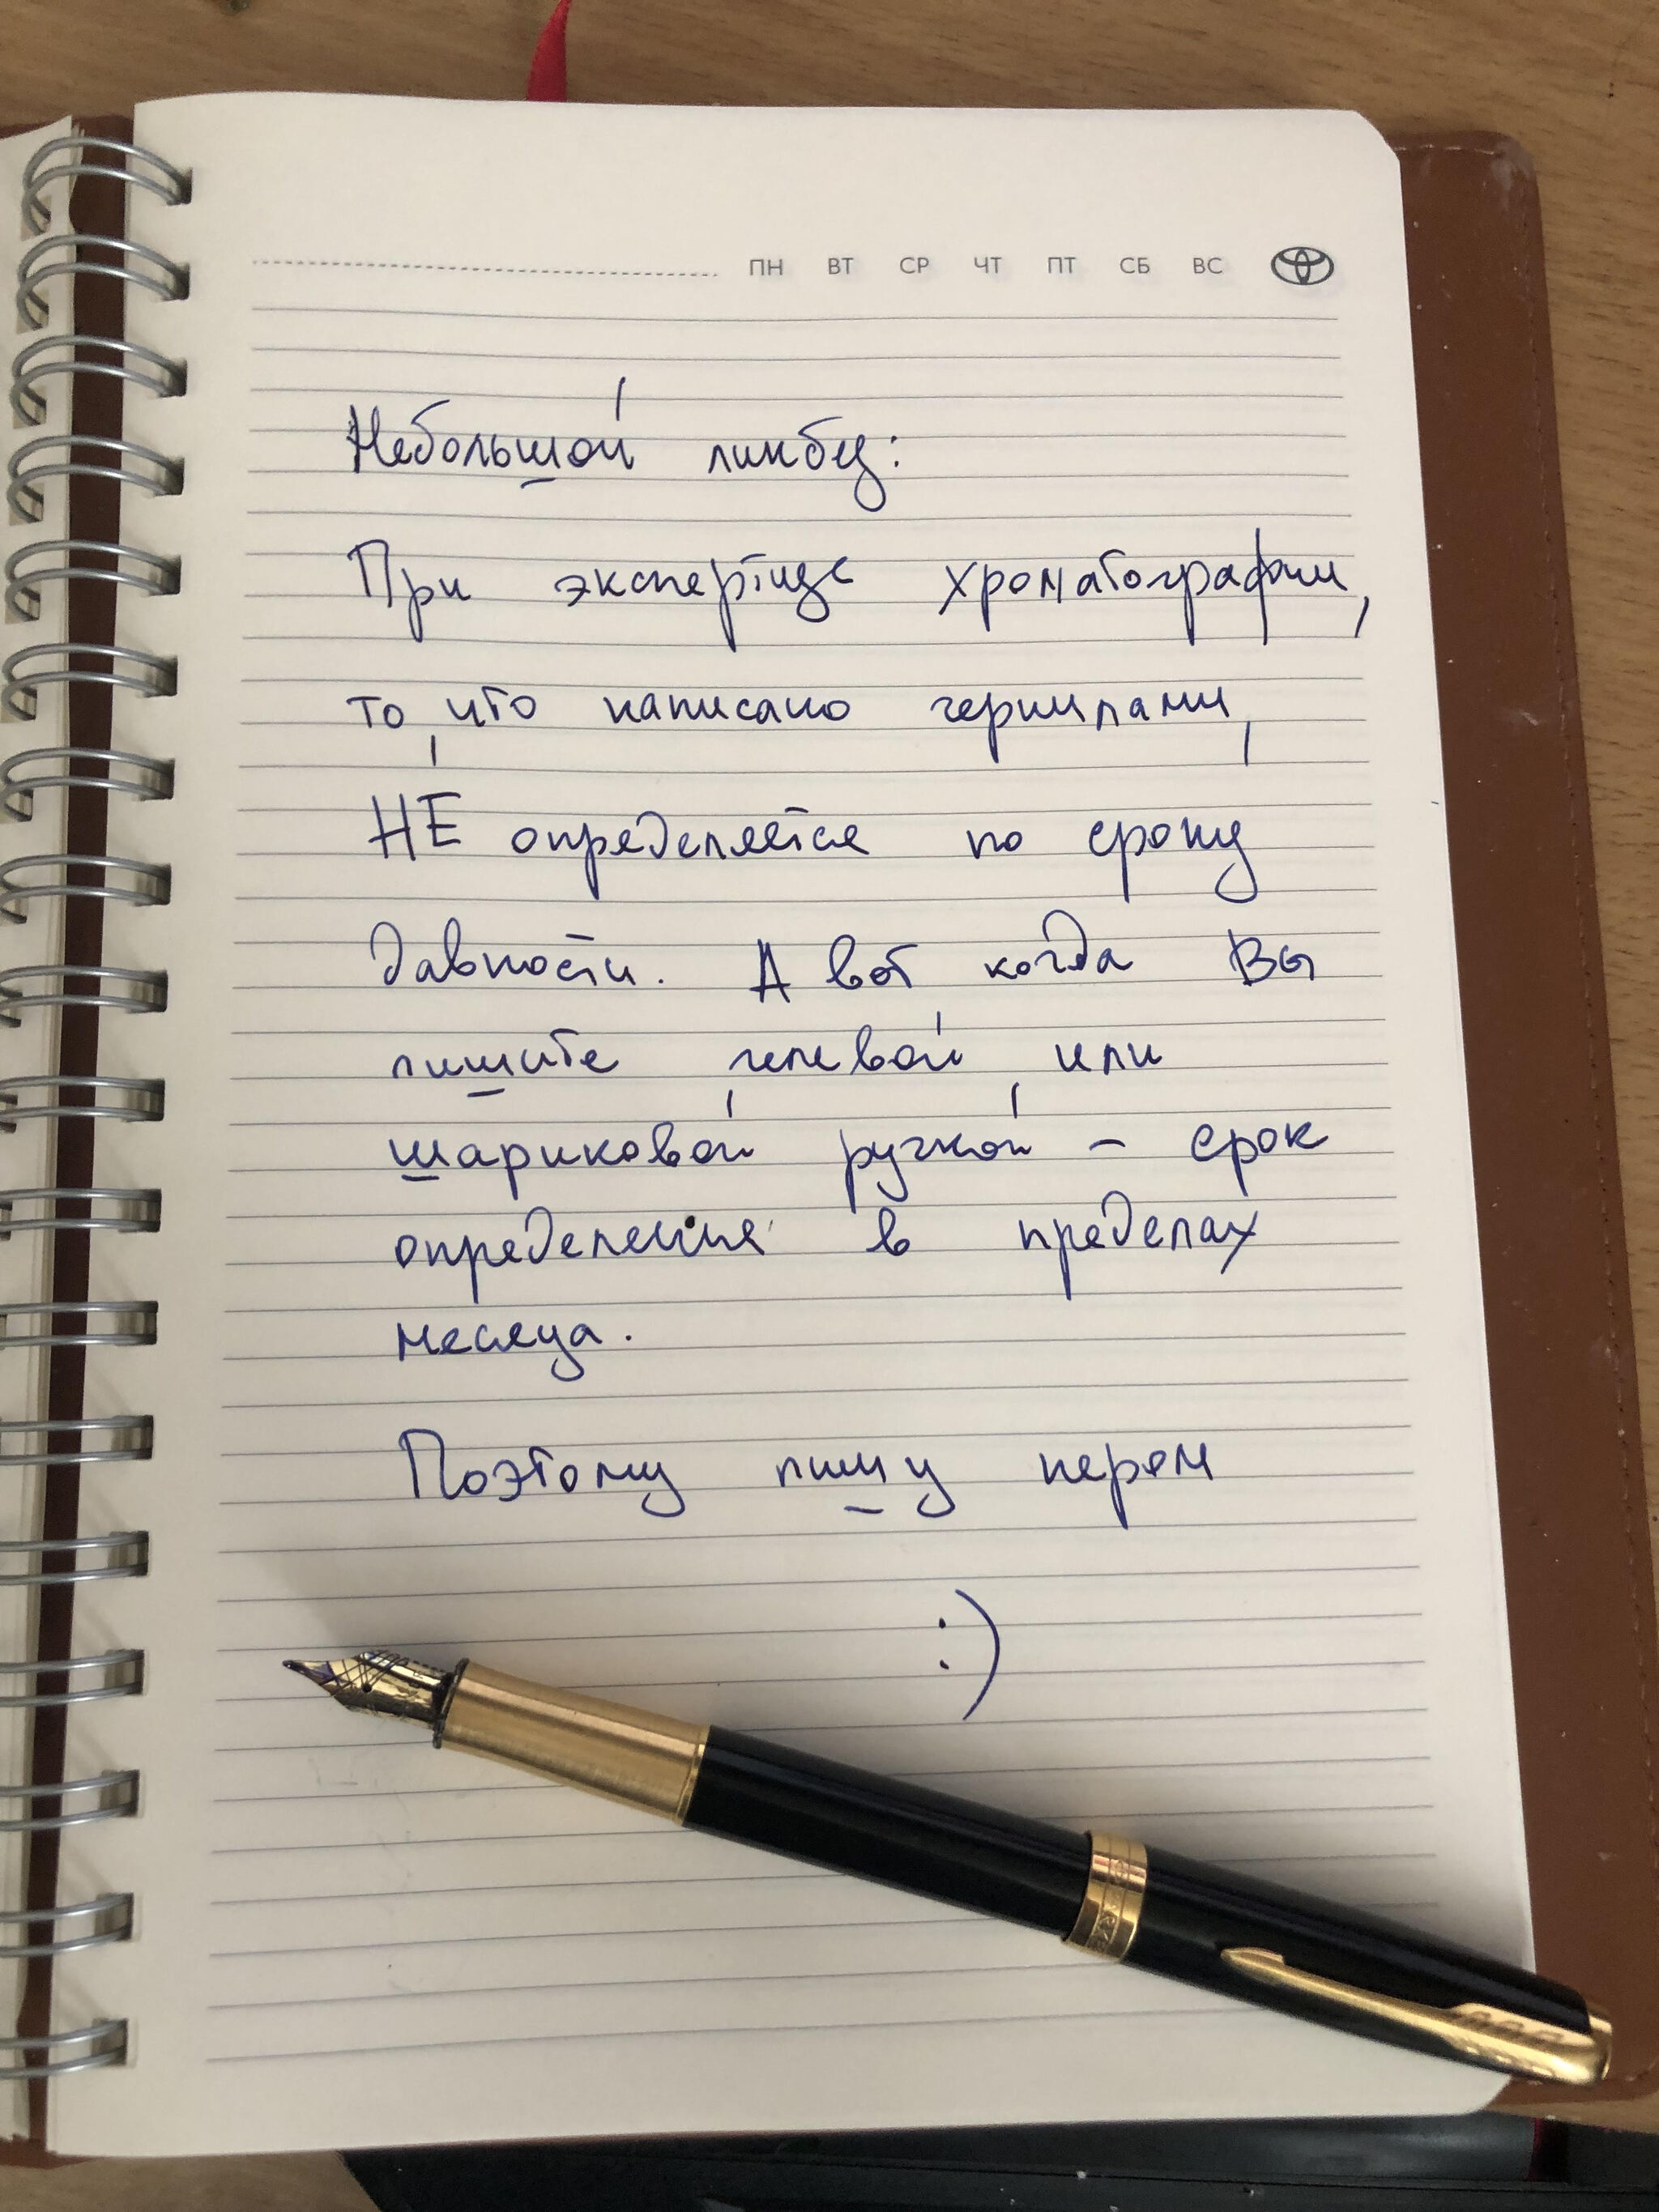 ПН ВТ СР ЧТ ПТ СБ ВС
Небольшой ликбез:
При экспертизе хроматографии,
то, что написано чернилами,
НЕ определяется по сроку
давности. А вот когда Вы
пишите гелевой или
шариковой ручкой – срок
определения в пределах
месяца.
Поэтому пишу пером
:)